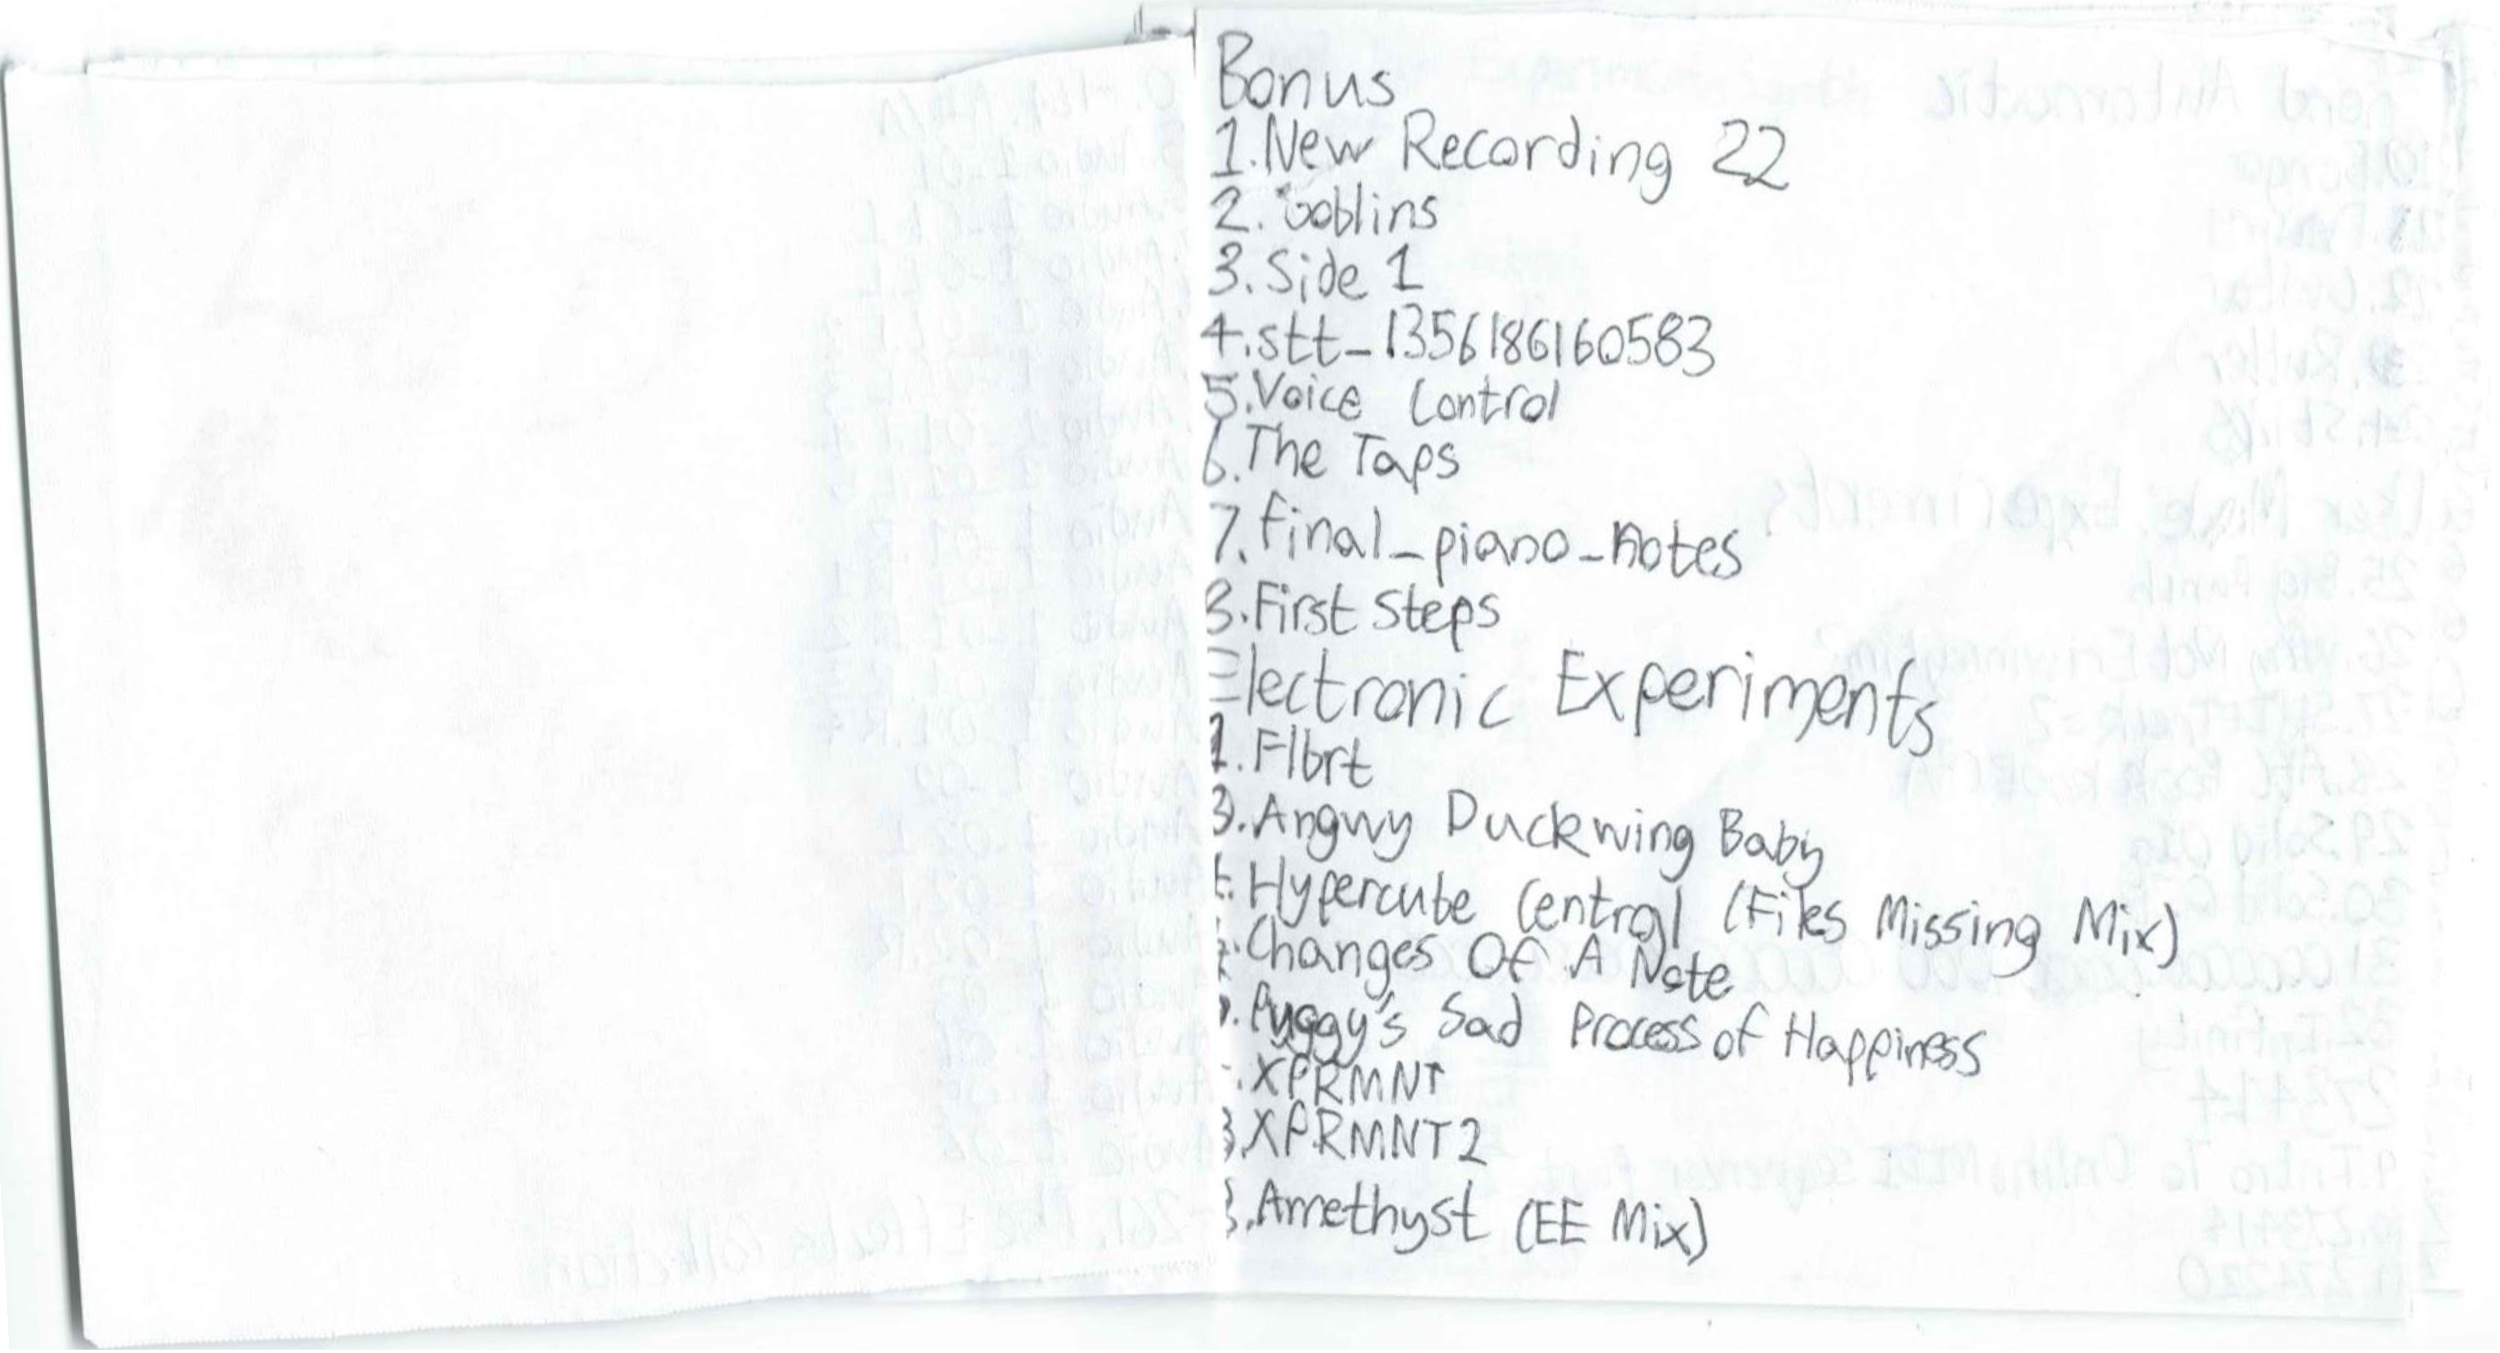 Bonus
1.New Recording 22
2. Goblins
3. Side 1
4.stt_1356186160583
5.Voice Control
6.The Taps
7. final_piano_notes
8.First Steps
Electronic Experiments
1. Flbrt
3. Angwy Duckwing Baby
Hypercube Central (Files Missing Mix)
Changes Of A Note
Puggy's Sad Process of Happiness
XPRMNT
XPRMNT2
Amethyst (EE Mix)